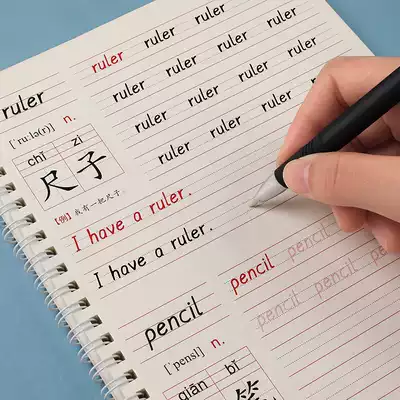 ruler
ruler ruler ruler ruler
ruler ruler ruler ruler
ruler ruler ruler ruler
ruler ruler ruler ruler
['ru:lə(r)] n.
chǐ zi
尺子
【例】我有一把尺子。
I have a ruler.
I have a ruler.
pencil
pencil pencil pencil
pencil pencil pencil
['pensl] n.
qiān bǐ